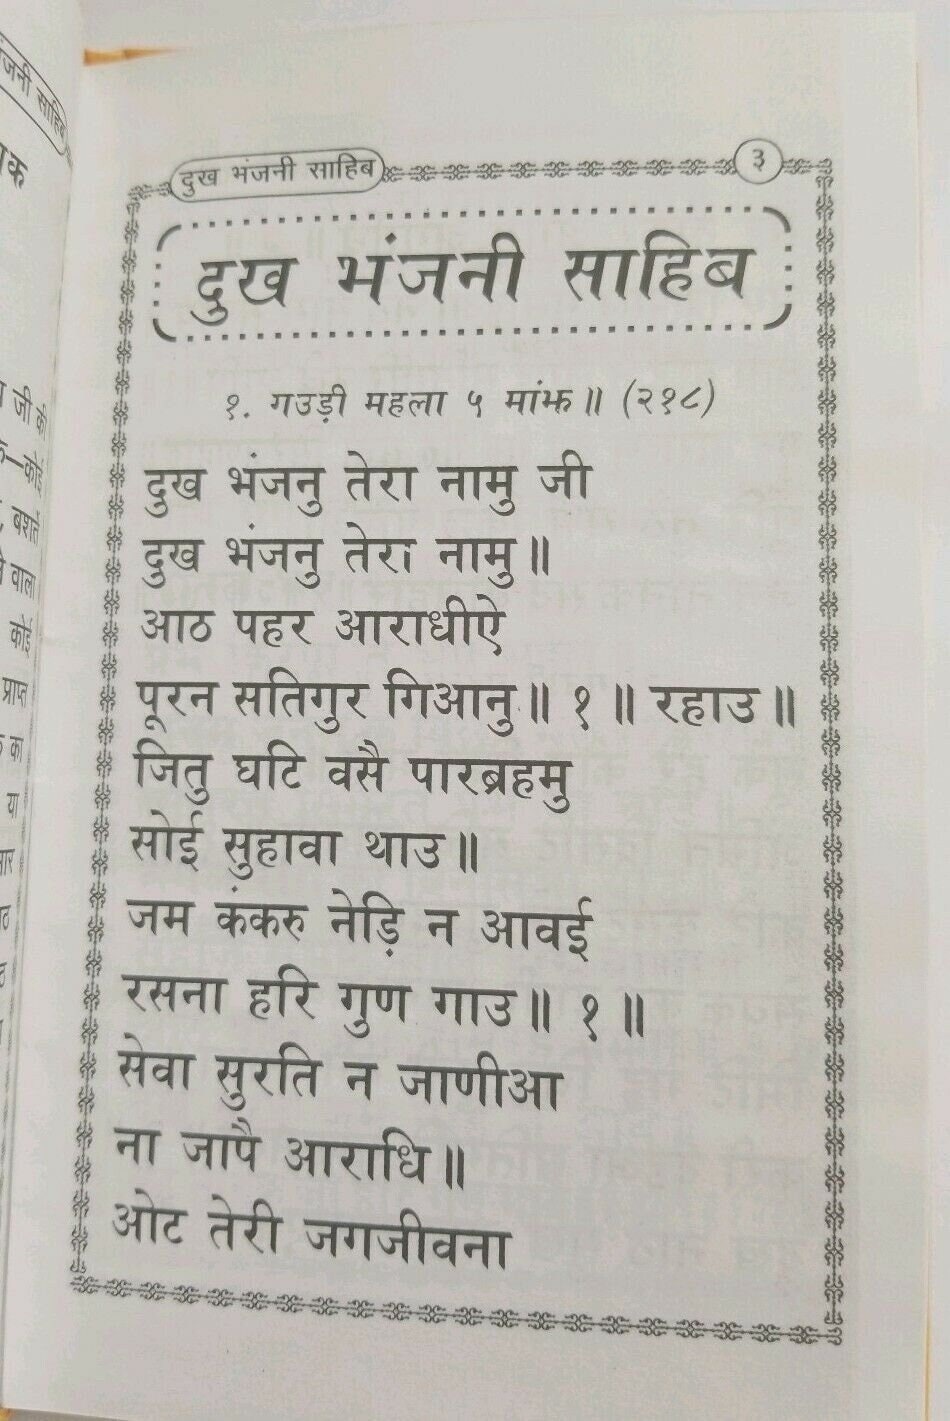 ंजनी साहिब
क
जी की
—कोई
बशर्ते
वाला
कोई
प्राप्त
का
या
दुख भंजनी साहिब
३
दुख भंजनी साहिब
१. गउड़ी महला ५ मांझ॥ (२१८)
दुख भंजनु तेरा नामु जी
दुख भंजनु तेरा नामु॥
आठ पहर आराधीऐ
पूरन सतिगुर गिआनु॥ १॥ रहाउ॥
जितु घटि वसै पारब्रहमु
सोई सुहावा थाउ॥
जम कंकरु नेड़ि न आवई
रसना हरि गुण गाउ॥ १॥
सेवा सुरति न जाणीआ
ना जापै आराधि॥
ओट तेरी जगजीवना